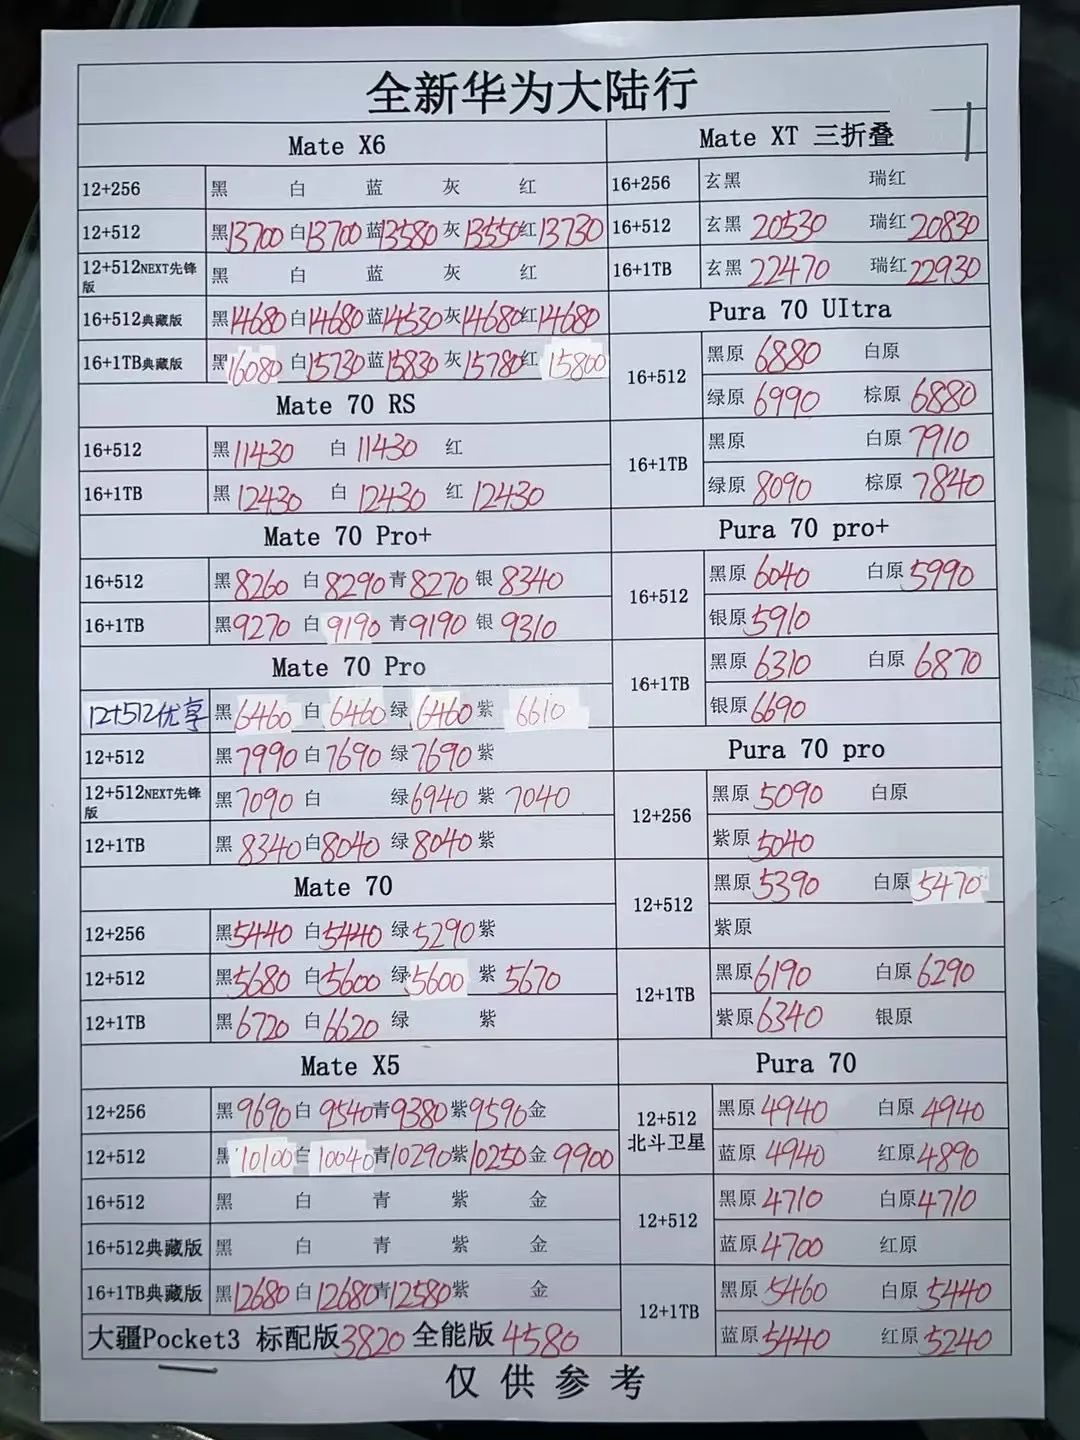 全新华为大陆行
Mate X6
12+256 黑 白 蓝 灰 红
12+512 黑13700 白13700 蓝13580 灰13550 红13730
12+512NEXT先锋版 黑 白 蓝 灰 红
16+512典藏版 黑14680 白14680 蓝14530 灰14680 红14680
16+1TB典藏版 黑16080 白15730 蓝15830 灰15780 红15800
Mate 70 RS
16+512 黑11430 白11430 红
16+1TB 黑12430 白12430 红12430
Mate 70 Pro+
16+512 黑8260 白8290 青8270 银8340
16+1TB 黑9270 白9190 青9190 银9310
Mate 70 Pro
12+512优享 黑6460 白6460 绿6460 紫6610
12+512 黑7990 白7690 绿7690 紫
12+512NEXT先锋版 黑7090 白 绿6940 紫7040
12+1TB 黑8340 白8040 绿8040 紫
Mate 70
12+256 黑5440 白5440 绿5290 紫
12+512 黑5680 白5600 绿5600 紫5670
12+1TB 黑6720 白6620 绿 紫
Mate X5
12+256 黑9690 白9540 青9380 紫9590 金
12+512 黑10100 白10040 青10290 紫10250 金9900
16+512 黑 白 青 紫 金
16+512典藏版 黑 白 青 紫 金
16+1TB典藏版 黑12680 白12680 青12580 紫 金
大疆Pocket3 标配版3820 全能版4580
Mate XT 三折叠
16+256 玄黑 瑞红
16+512 玄黑20530 瑞红20830
16+1TB 玄黑22470 瑞红22930
Pura 70 UItra
16+512 黑原6880 白原
绿原6990 棕原6880
16+1TB 黑原 白原7910
绿原8090 棕原7840
Pura 70 pro+
16+512 黑原6040 白原5990
银原5910
16+1TB 黑原6310 白原6870
银原6690
Pura 70 pro
12+256 黑原5090 白原
紫原5040
12+512 黑原5390 白原5470
紫原
12+1TB 黑原6190 白原6290
紫原6340 银原
Pura 70
12+512北斗卫星 黑原4940 白原4940
蓝原4940 红原4890
12+512 黑原4710 白原4710
蓝原4700 红原
12+1TB 黑原5460 白原5440
蓝原5440 红原5240
仅供参考